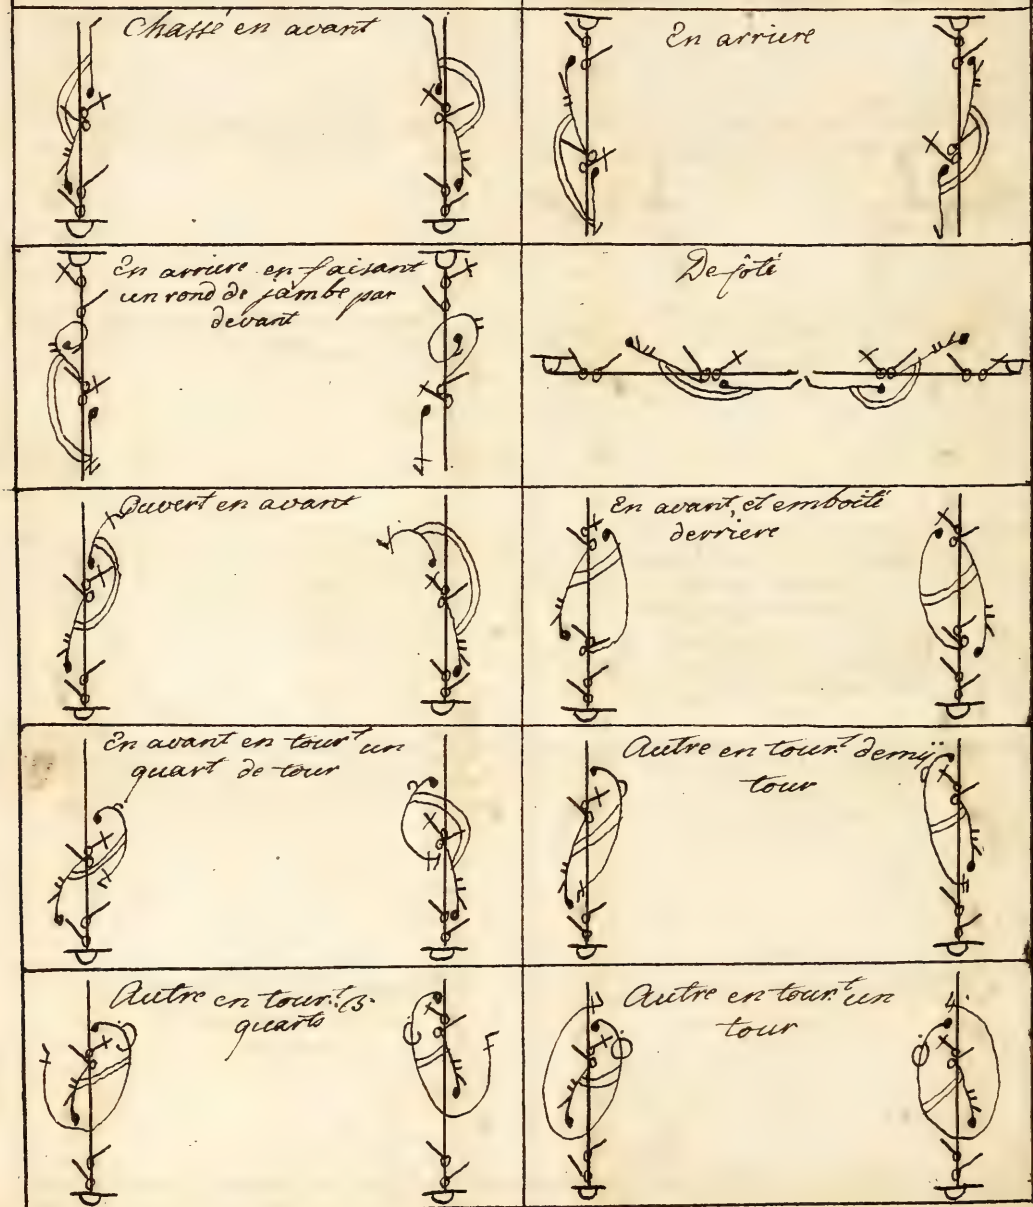 Chassé en avant
En arriere
En arriere en faisant
un rond de jambe par
devant
De côté
Ouvert en avant
En avant, et emboîté
derriere
En avant en tourt un
quart de tour
Autre en tourt demÿ
tour
Autre en tourt 3
quarts
Autre en tourt un
tour